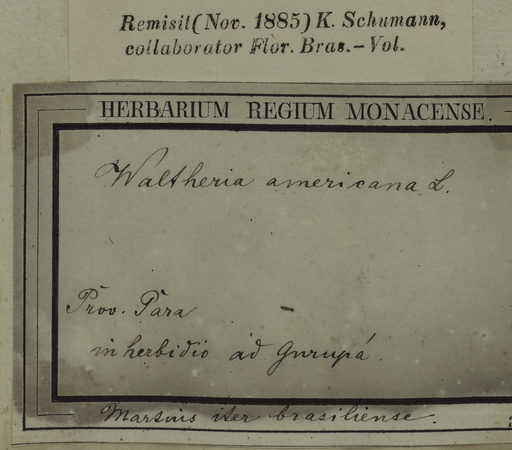 Remisit (Nov. 1885) K. Schumann,
collaborator Flor. Bras. – Vol.
HERBARIUM REGIUM MONACENSE.
Waltheria americana L.
Prov. Para –
in herbidio ad Gurupá.
Martius iter brasiliense.